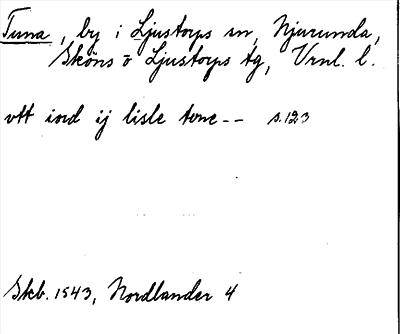 Tuna, by i Ljustorps sn, Njurunda,
Sköns o Ljustorps tg, Vrnl. l.
vtt iord ij lisle tone -- s.123
Skb. 1543, Nordlander 4